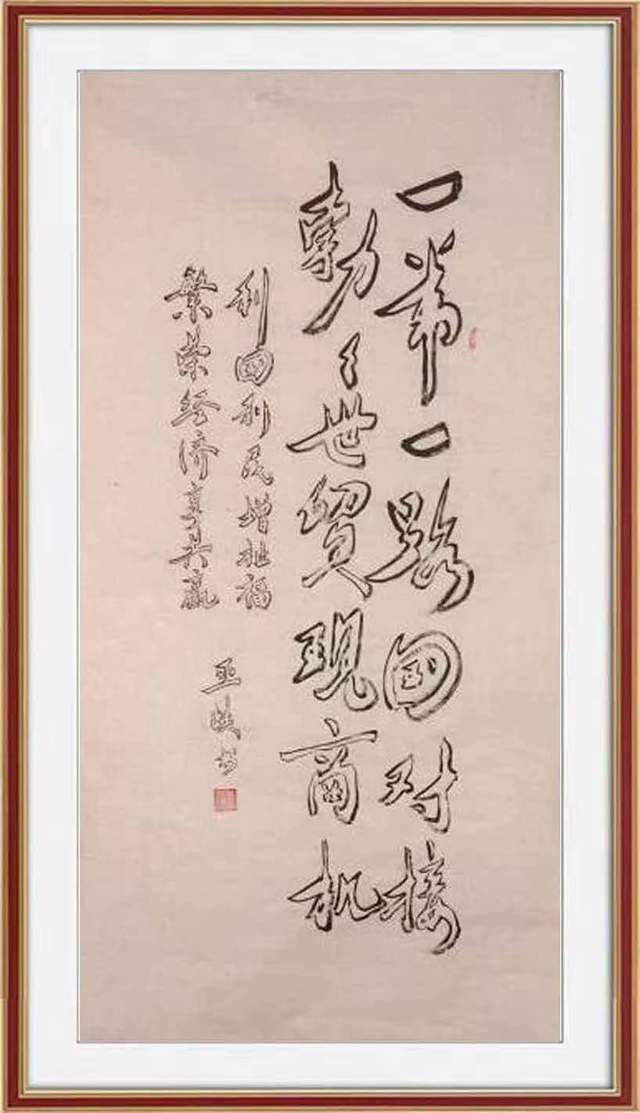 一带一路国对接
勃々世贸现商机
利国利民增祉福
繁荣经济享共赢
书